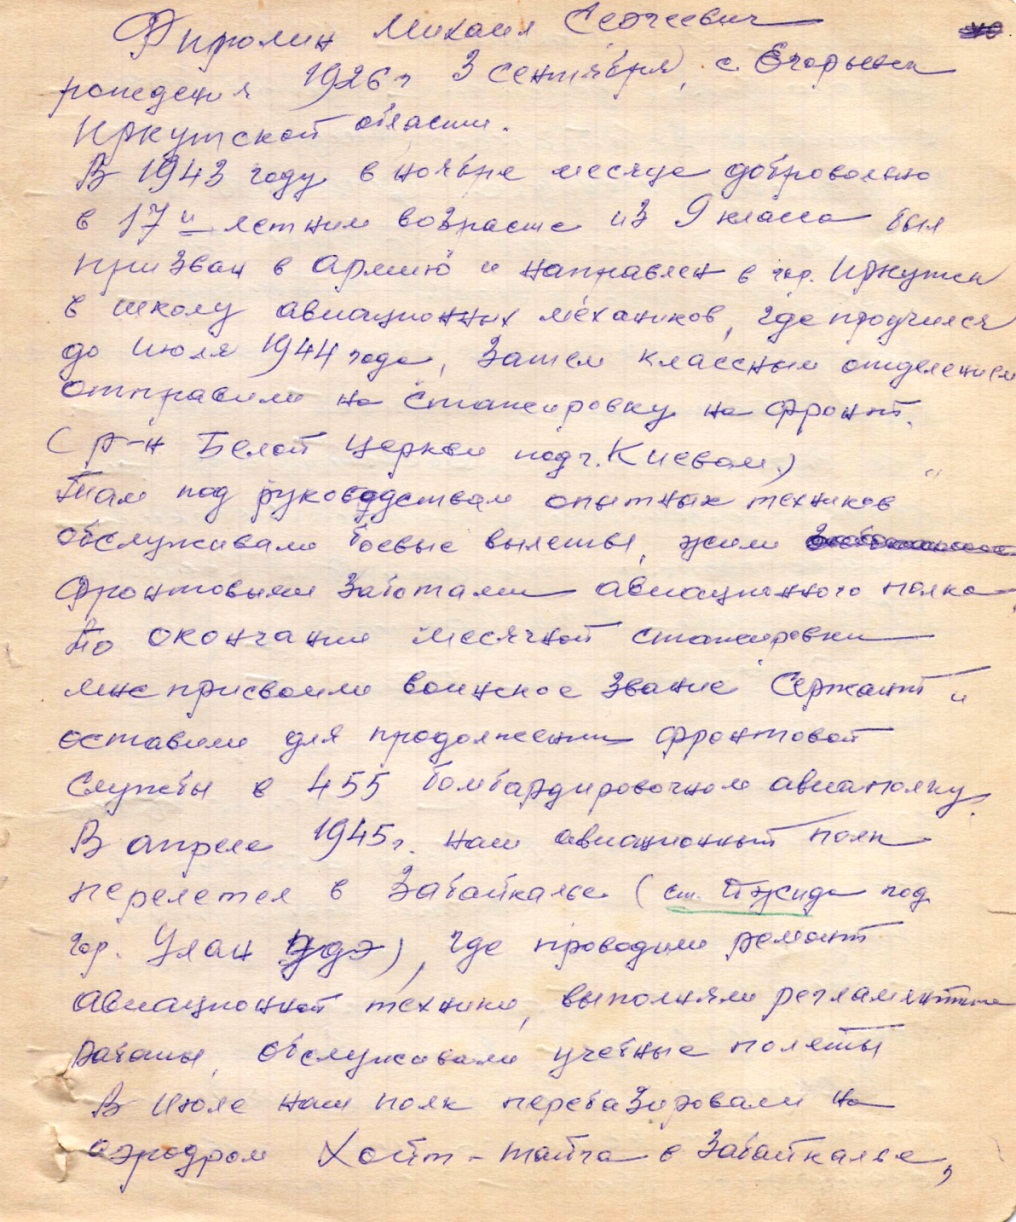 Фиролин Михаил Сергеевич
рождения 1926 г 3 сентября, с. Егорьевск
Иркутской области.
В 1943 году в ноябре месяце добровольно
в 17и летнем возрасте из 9 класса был
призван в армию и направлен в гор. Иркутск
в школу авиационных механиков, где проучился
до июля 1944 года, Затем классным отделением
отправили на стажировку на фронт.
(р-н Белой Церкви под г. Киевом)
Там под руководством опытных техников
обслуживали боевые вылеты, жили
фронтовыми заботами авиационного полка.
По окончании месячной стажировки
мне присвоили воинское звание Сержант и
оставили для продолжения фронтовой
службы в 455 бомбардировочном авиаполку.
В апреле 1945 г. наш авиационный полк
перелетел в Забайкалье (ст. Джида под
гор. Улан Удэ), где проводили ремонт
авиационной техники, выполняли регламентные
работы, обслуживали учебные полёты
В июле наш полк перебазировали на
аэродром Хойт-тайга в Забайкалье,